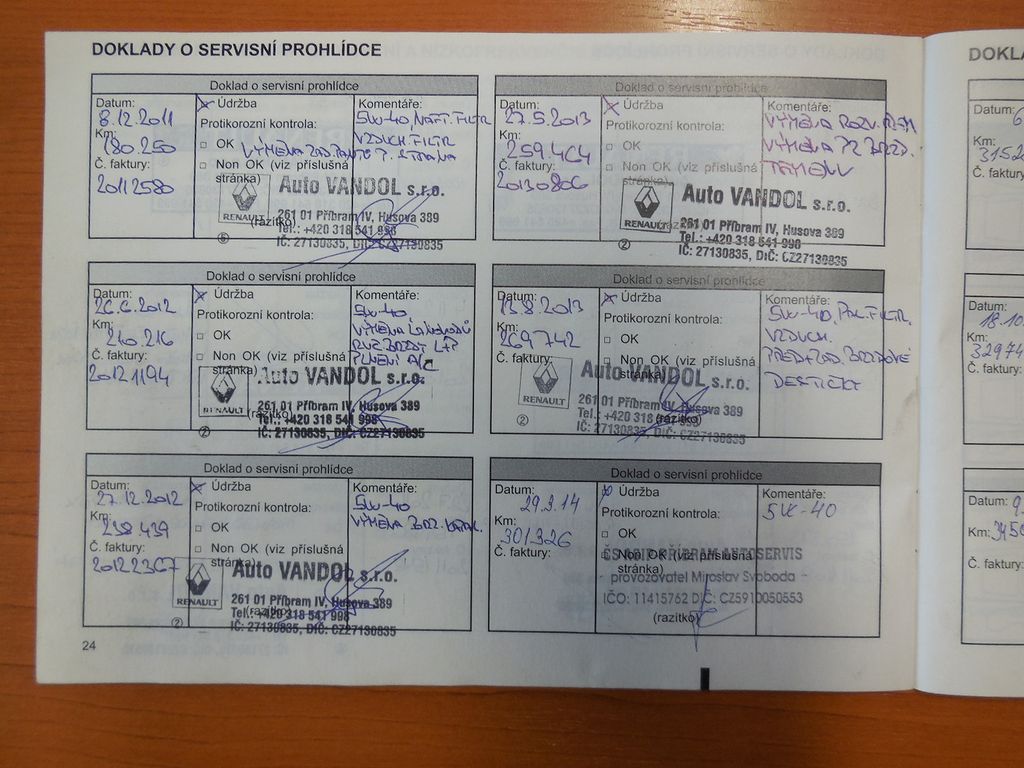 DOKLADY O SERVISNÍ PROHLÍDCE
Doklad o servisní prohlídce
Datum:
8.12.2011
Km:
180.250
Č. faktury:
20112580
Údržba
Protikorozní kontrola:
OK
Non OK (viz příslušná
stránka)
(razítko)
Komentáře:
5W-40, NAFT. FILTR
VZDUCH. FILTR
RENAULT
Auto VANDOL s.r.o.
261 01 Příbram IV, Husova 389
Tel.: +420 318 541 998
IČ: 27130835, DIČ: CZ27130835
Doklad o servisní prohlídce
Datum:
26.6.2012
Km:
210.216
Č. faktury:
20121194
Údržba
Protikorozní kontrola:
OK
Non OK (viz příslušná
stránka)
(razítko)
Komentáře:
5W-40,
VÝMĚNA
PLNĚNÍ A/C
RENAULT
Auto VANDOL s.r.o.
261 01 Příbram IV, Husova 389
Tel.: +420 318 541 998
IČ: 27130835, DIČ: CZ27130835
Doklad o servisní prohlídce
Datum:
27.12.2012
Km:
238.439
Č. faktury:
20122367
Údržba
Protikorozní kontrola:
OK
Non OK (viz příslušná
stránka)
(razítko)
Komentáře:
5W-40
VÝMĚNA BRZ. KAPAL.
RENAULT
Auto VANDOL s.r.o.
261 01 Příbram IV, Husova 389
Tel.: +420 318 541 998
IČ: 27130835, DIČ: CZ27130835
24
Doklad o servisní prohlídce
Datum:
27.5.2013
Km:
259.464
Č. faktury:
20130806
Údržba
Protikorozní kontrola:
OK
Non OK (viz příslušná
stránka)
(razítko)
Komentáře:
VÝMĚNA ROZV. ŘEM
VÝMĚNA PŘ BRZD.
RENAULT
Auto VANDOL s.r.o.
261 01 Příbram IV, Husova 389
Tel.: +420 318 541 998
IČ: 27130835, DIČ: CZ27130835
Doklad o servisní prohlídce
Datum:
13.8.2013
Km:
269742
Č. faktury:
Údržba
Protikorozní kontrola:
OK
Non OK (viz příslušná
stránka)
(razítko)
Komentáře:
5W-40, PAL. FILTR,
VZDUCH.
PŘED+ZAD. BRZDOVÉ
DESTIČKY
RENAULT
Auto VANDOL s.r.o.
261 01 Příbram IV, Husova 389
Tel.: +420 318 541 998
IČ: 27130835, DIČ: CZ27130835
Doklad o servisní prohlídce
Datum:
29.3.14
Km:
301326
Č. faktury:
Údržba
Protikorozní kontrola:
OK
Non OK (viz příslušná
stránka)
(razítko)
Komentáře:
5W-40
PŘÍBRAM AUTOSERVIS
- provozovatel Miroslav Svoboda -
IČO: 11415762 DIČ: CZ5910050553
DOKL
Datum:
Km:
3152
Č. faktury:
Datum:
18.10
Km:
32974
Č. faktury:
Datum:
Km:
3450
Č. faktury: